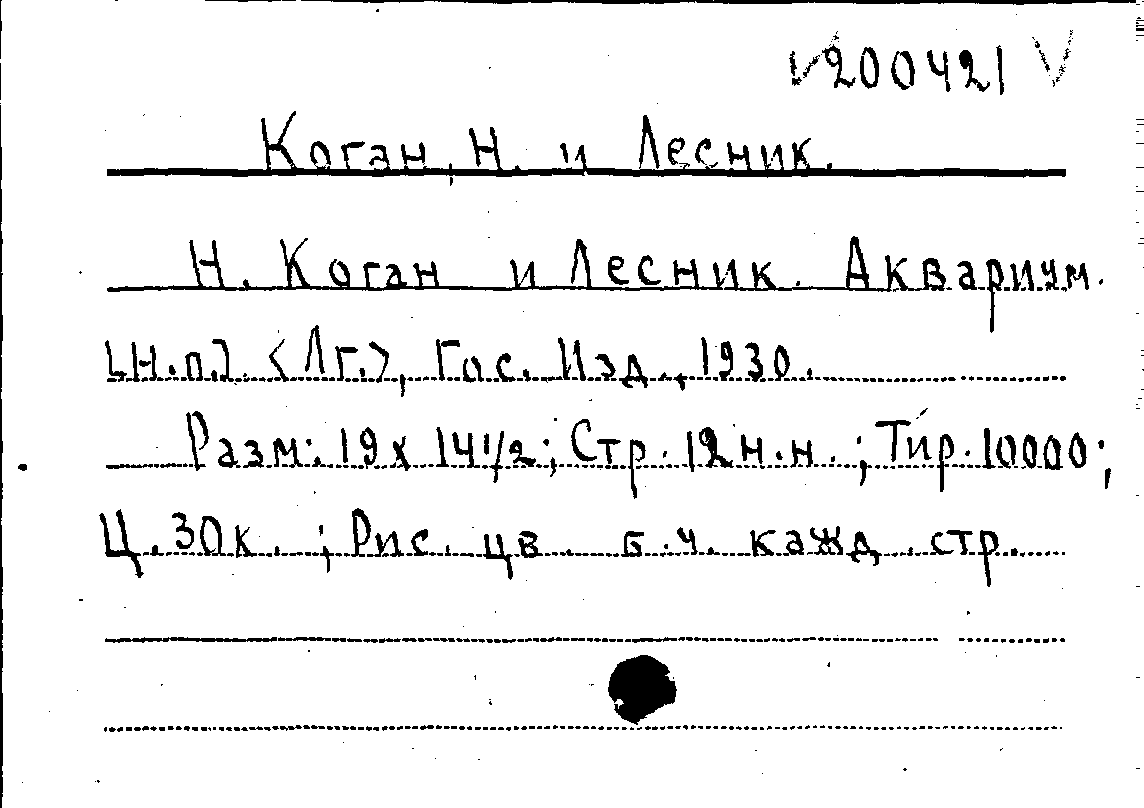 V200421 V
Коган, Н. и Лесник.
Н. Коган и Лесник. Аквариум.
[Н.п.]. <Лг.>, Гос. Изд., 1930.
Разм: 19х 14 1/2; Стр. 12 н.н.; Тир. 10000;
Ц. 30к.; Рис. цв. б.ч. кажд. стр.